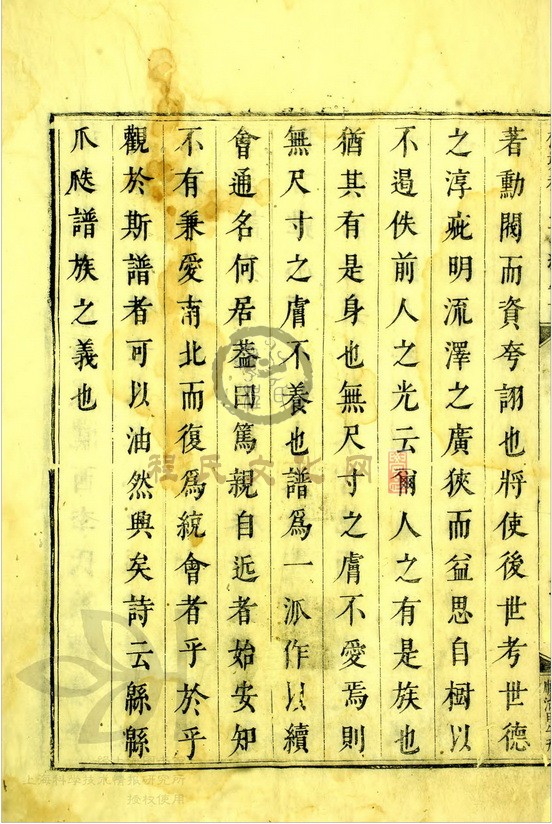 著勳閥而資夸詡也將使後世考世德
之淳疵明流澤之廣狹而益思自樹以
不遏佚前人之光云爾人之有是族也
猶其有是身也無尺寸之膚不愛焉則
無尺寸之膚不養也譜爲一派作以續
會通名何居葢曰篤親自近者始安知
不有兼愛南北而復爲統會者乎於乎
觀於斯譜者可以油然興矣詩云緜緜
瓜瓞譜族之義也
程氏文化网
上海科学技术情报研究所
授权使用